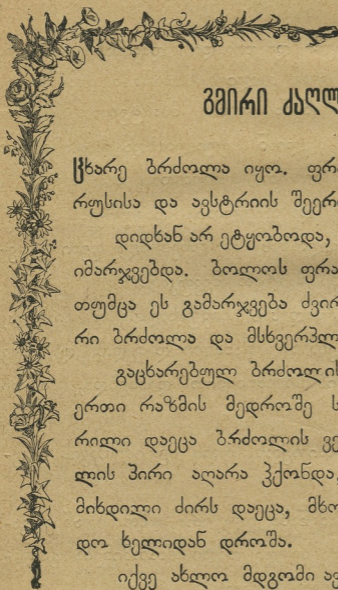 გმირი ძაღლ
ცხარე ბრძოლა იყო. ფრ
რუსისა და ავსტრიის შეერ
დიდხან არ ეტყობოდა,
იმარჯვებდა. ბოლოს ფრა
თუმცა ეს გამარჯვება ძვირ
რი ბრძოლა და მსხვერპლ
გაცხარებულ ბრძოლის
ერთი რაზმის მედროშე ს
რილი დაეცა ბრძოლის ვე
ლის პირი აღარა ჰქონდა,
მიხდილი ძირს დაეცა, მხო
და ხელიდან დროშა.
იქვე ახლო მდგომი აფ